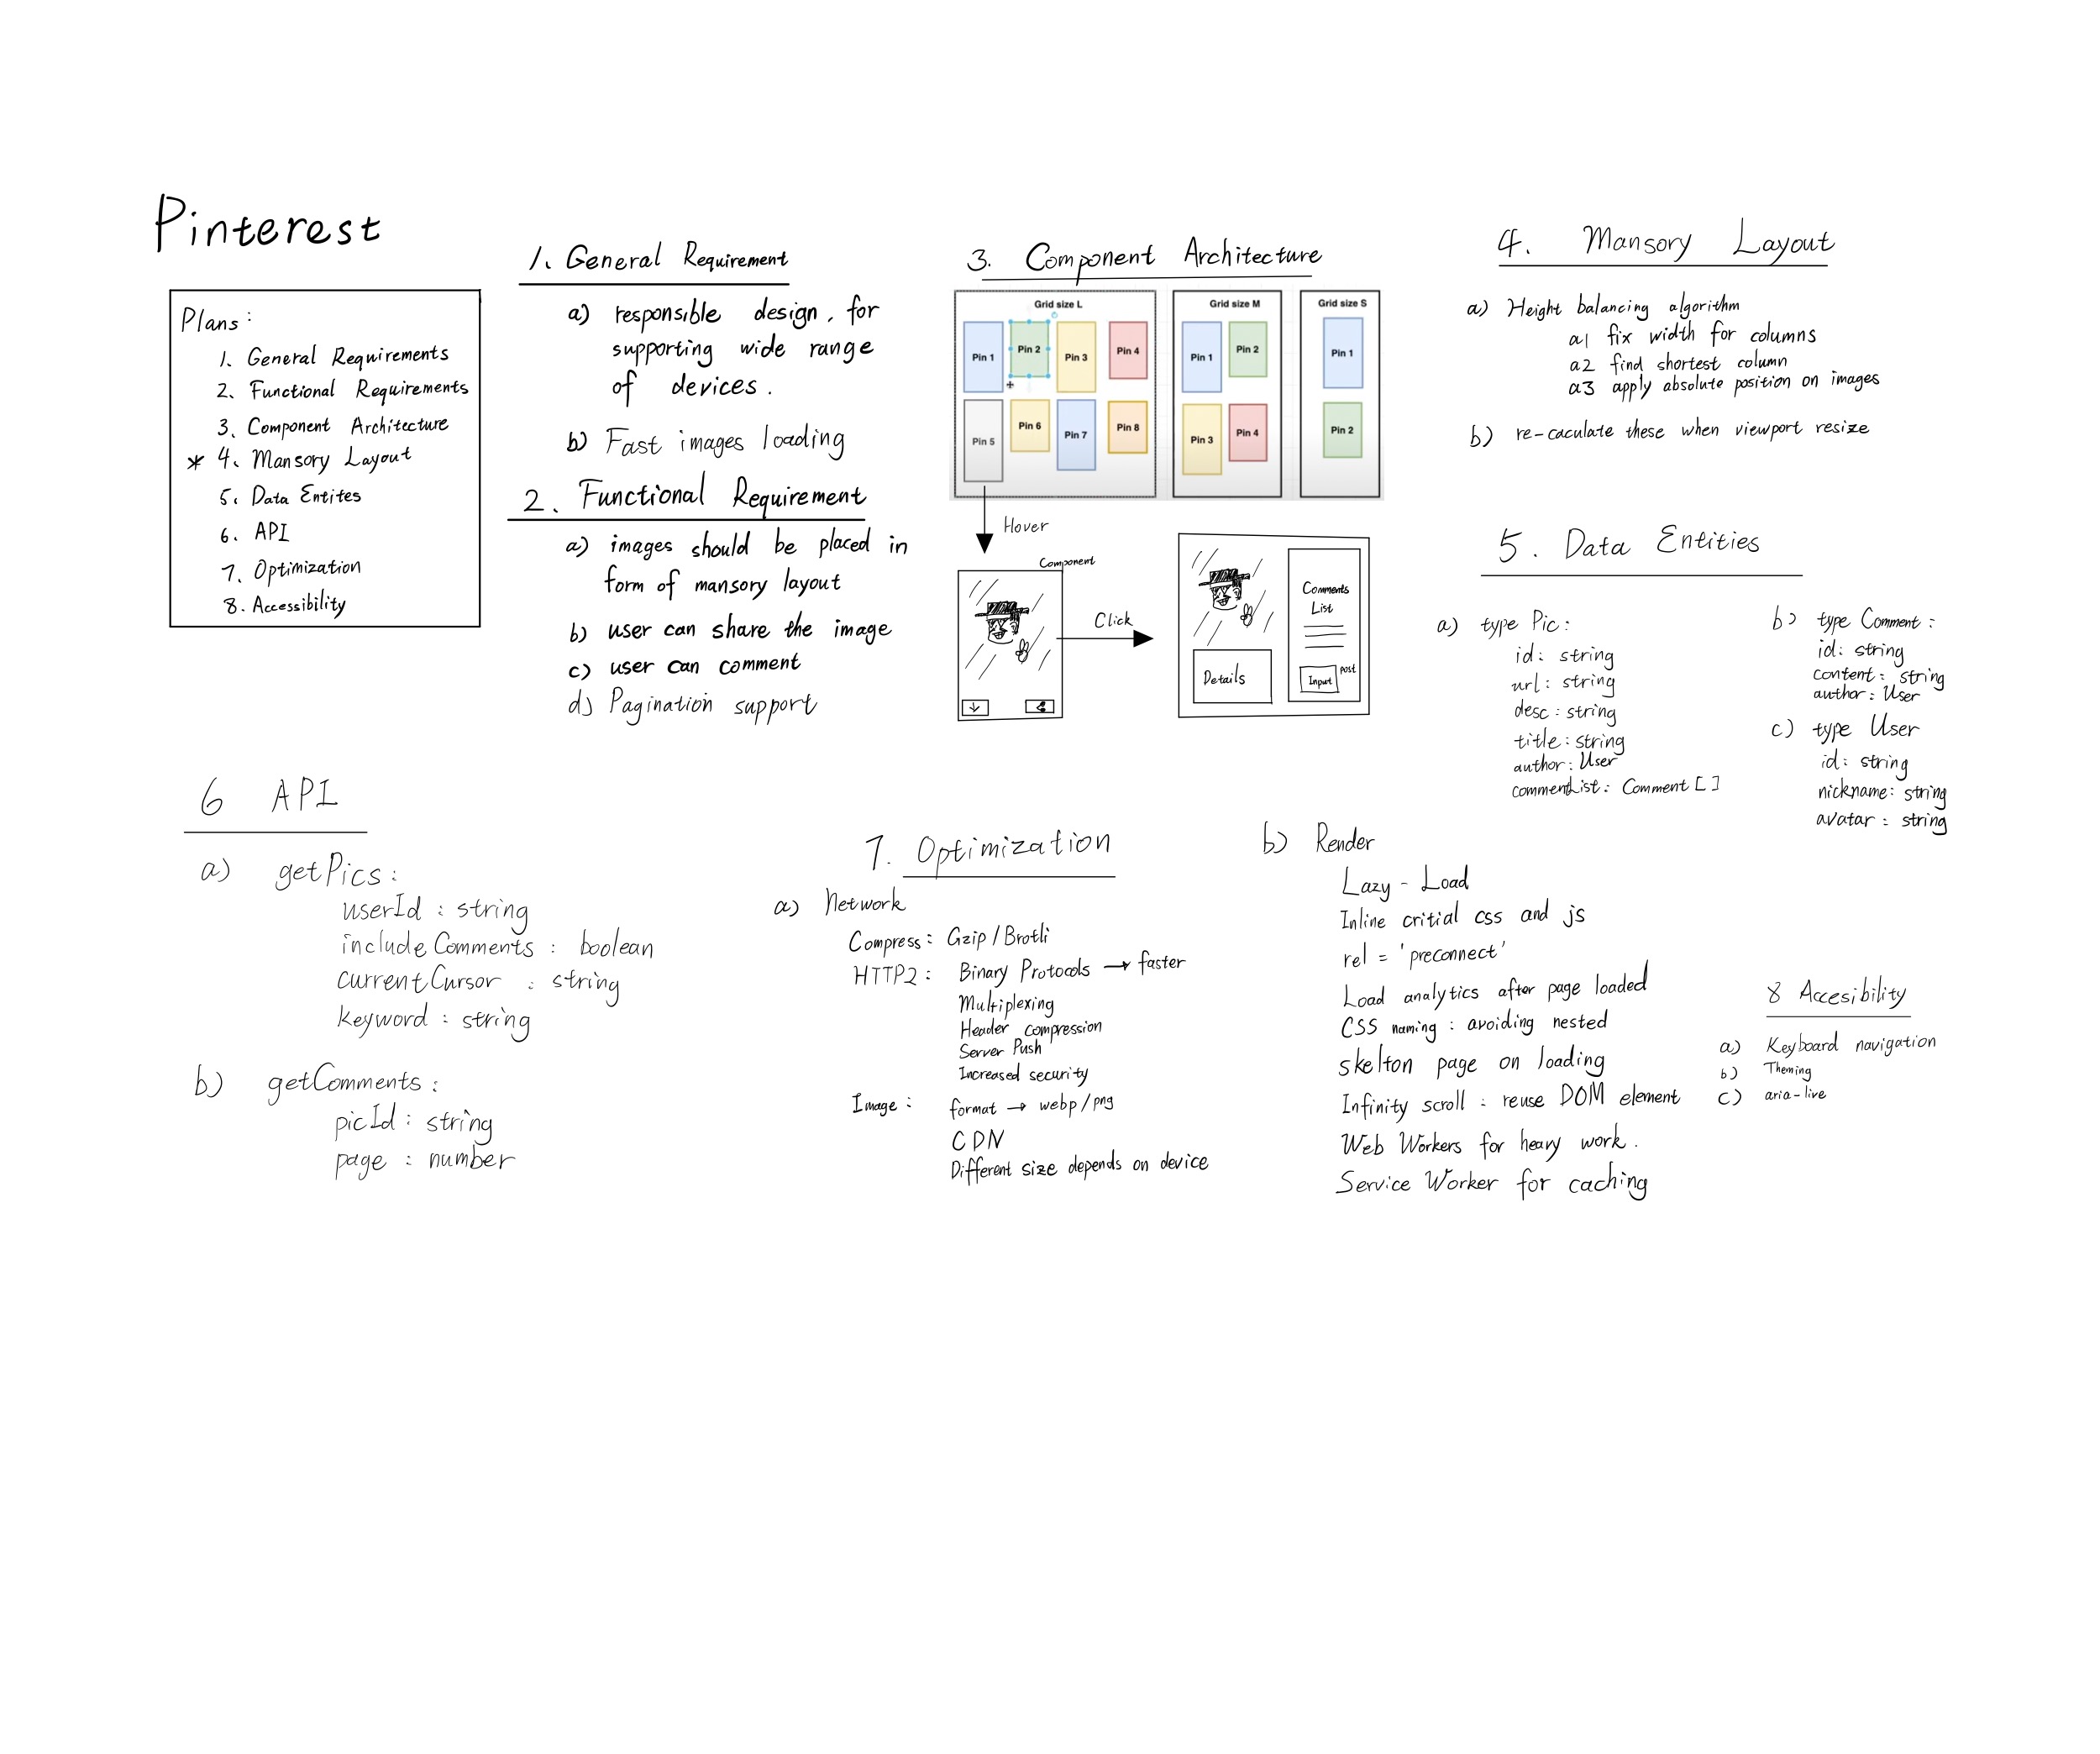 Pinterest
Plans:
1. General Requirements
2. Functional Requirements
3. Component Architecture
* 4. Mansory Layout
5. Data Entites
6. API
7. Optimization
8. Accessibility
1. General Requirement
a) responsible design, for
supporting wide range
of devices.
b) Fast images loading
2. Functional Requirement
a) images should be placed in
form of mansory layout
b) user can share the image
c) user can comment
d) Pagination support
3. Component Architecture
Grid size L
Pin 1
Pin 2
Pin 3
Pin 4
Pin 5
Pin 6
Pin 7
Pin 8
Grid size M
Pin 1
Pin 2
Pin 3
Pin 4
Grid size S
Pin 1
Pin 2
Hover
Component
Click
Comments
List
Details
Input
post
4. Mansory Layout
a) Height balancing algorithm
a1 fix width for columns
a2 find shortest column
a3 apply absolute position on images
b) re-caculate these when viewport resize
5. Data Entities
a) type Pic:
id: string
url: string
desc: string
title: string
author: User
commentList: Comment []
b) type Comment:
id: string
content: string
author: User
c) type User
id: string
nickname: string
avatar: string
6 API
a) getPics:
userId: string
includeComments: boolean
currentCursor: string
keyword: string
b) getComments:
picId: string
page: number
7. Optimization
a) Network
Compress: Gzip/Brotli
HTTP2: Binary Protocols → faster
Multiplexing
Header compression
Server Push
Increased security
Image: format → webp/png
CDN
Different size depends on device
b) Render
Lazy-Load
Inline critial css and js
rel = 'preconnect'
Load analytics after page loaded
CSS naming: avoiding nested
skelton page on loading
Infinity scroll: reuse DOM element
Web Workers for heavy work.
Service Worker for caching
8 Accesibility
a) Keyboard navigation
b) Theming
c) aria-live